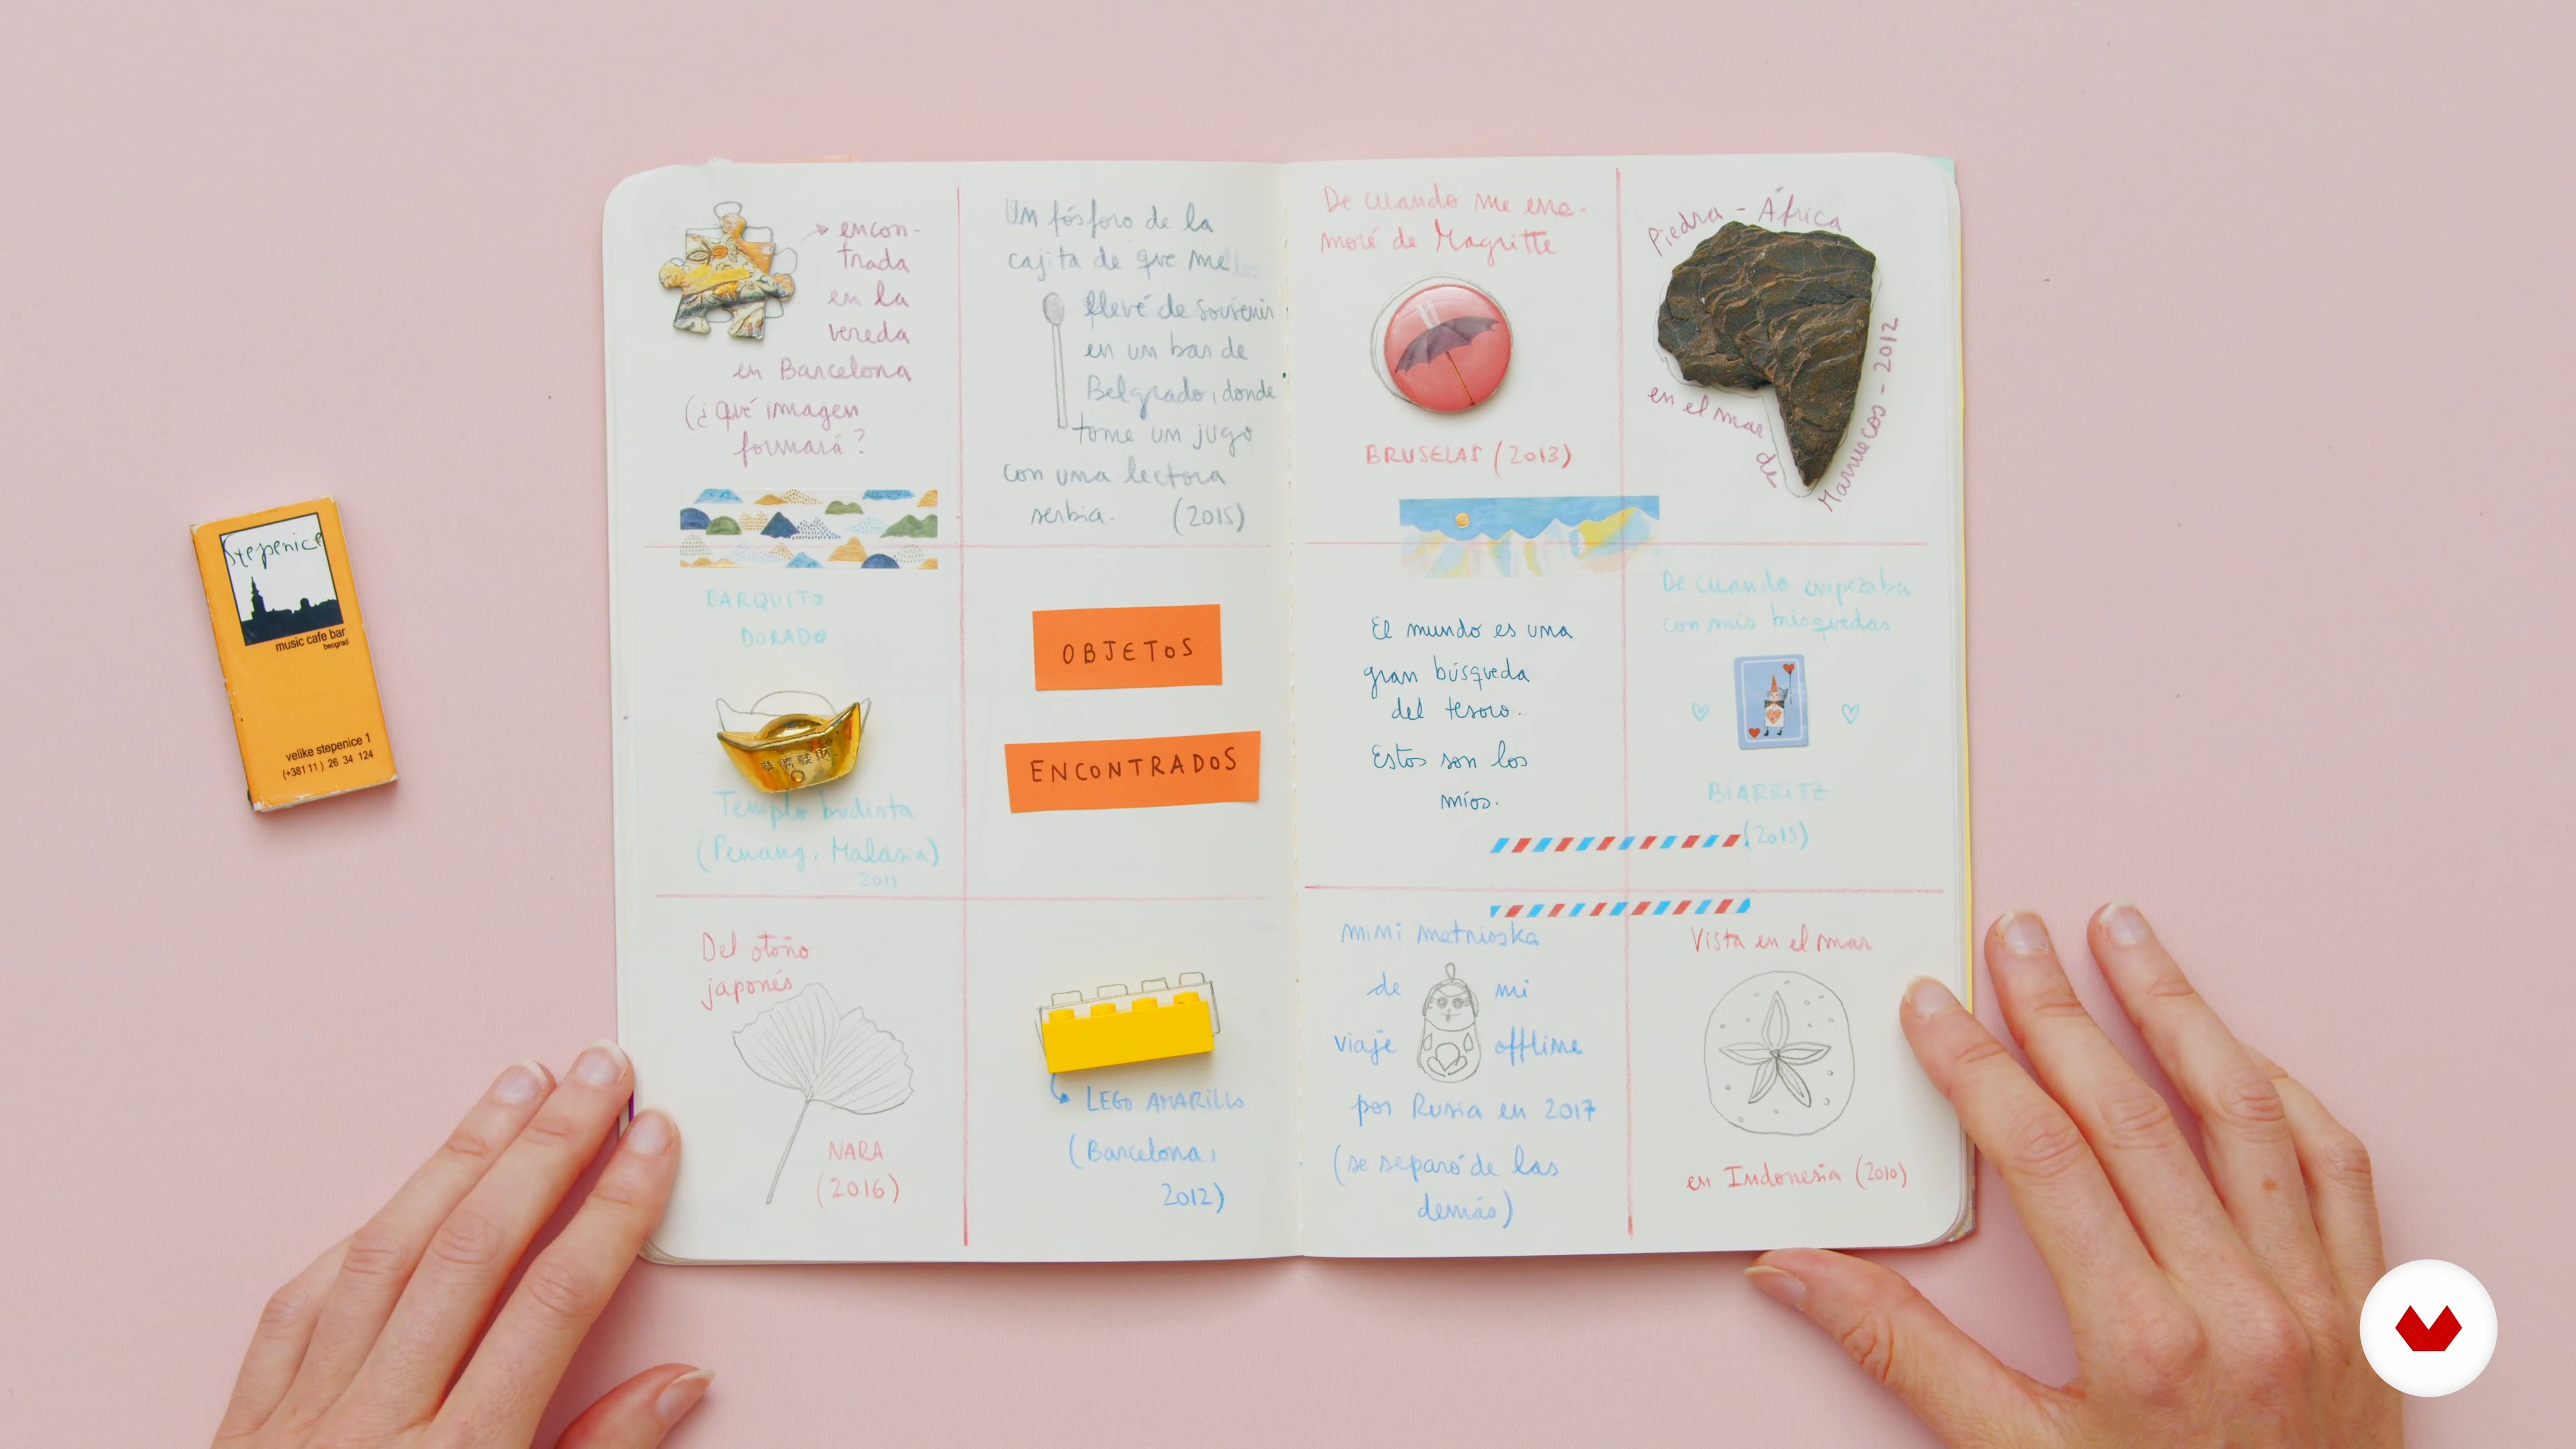 Stepenice
music cafe bar
beograd
velike stepenice 1
(+381 11) 26 34 124
encon-
trada
en la
vereda
en Barcelona
(¿Qué imagen
formará?
Un fósforo de la
cajita de que me
llevé de souvenir
en un bar de
Belgrado, donde
tome un jugo
con una lectora
serbia. (2015)
De cuando me ena-
moré de Magritte
BRUSELAS (2013)
Piedra - África
en el mar de
Marruecos - 2012
BARQUITO
DORADO
Templo budista
(Penang, Malasia)
2011
OBJETOS
ENCONTRADOS
El mundo es una
gran búsqueda
del tesoro.
Estos son los
míos.
De cuando empezaba
con mis búsquedas
BIARRITZ
(2015)
Del otoño
japonés
NARA
(2016)
LEGO AMARILLO
(Barcelona,
2012)
mimi matrioska
de mi
viaje offline
por Rusia en 2017
(se separó de las
demás)
Vista en el mar
en Indonesia (2010)